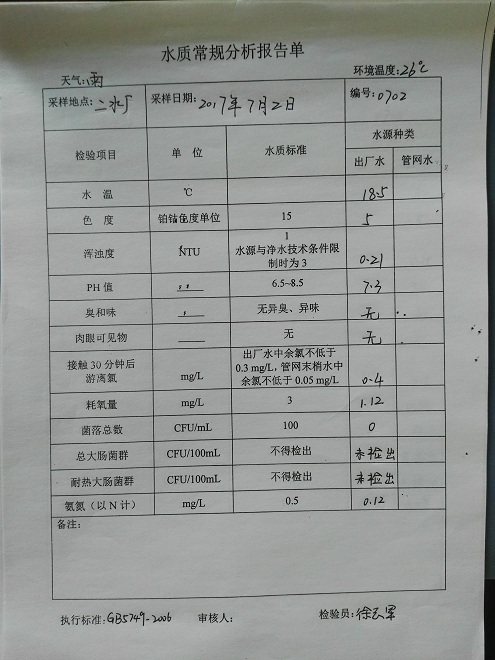 水质常规分析报告单
天气:雨 环境温度:26℃
采样地点:二水厂 采样日期:2017年7月2日 编号:0702
检验项目 单位 水质标准 水源种类
出厂水 管网水
水温 ℃ 18.5
色度 铂钴色度单位 15 5
浑浊度 NTU 1
水源与净水技术条件限
制时为3 0.21
PH值 6.5~8.5 7.3
臭和味 无异臭、异味 无
肉眼可见物 无 无
接触30分钟后
游离氯 mg/L 出厂水中余氯不低于
0.3 mg/L,管网末梢水中
余氯不低于0.05 mg/L 0.4
耗氧量 mg/L 3 1.12
菌落总数 CFU/mL 100 0
总大肠菌群 CFU/100mL 不得检出 未检出
耐热大肠菌群 CFU/100mL 不得检出 未检出
氨氮(以N计) mg/L 0.5 0.12
备注:
执行标准:GB5749-2006 审核人: 检验员:徐